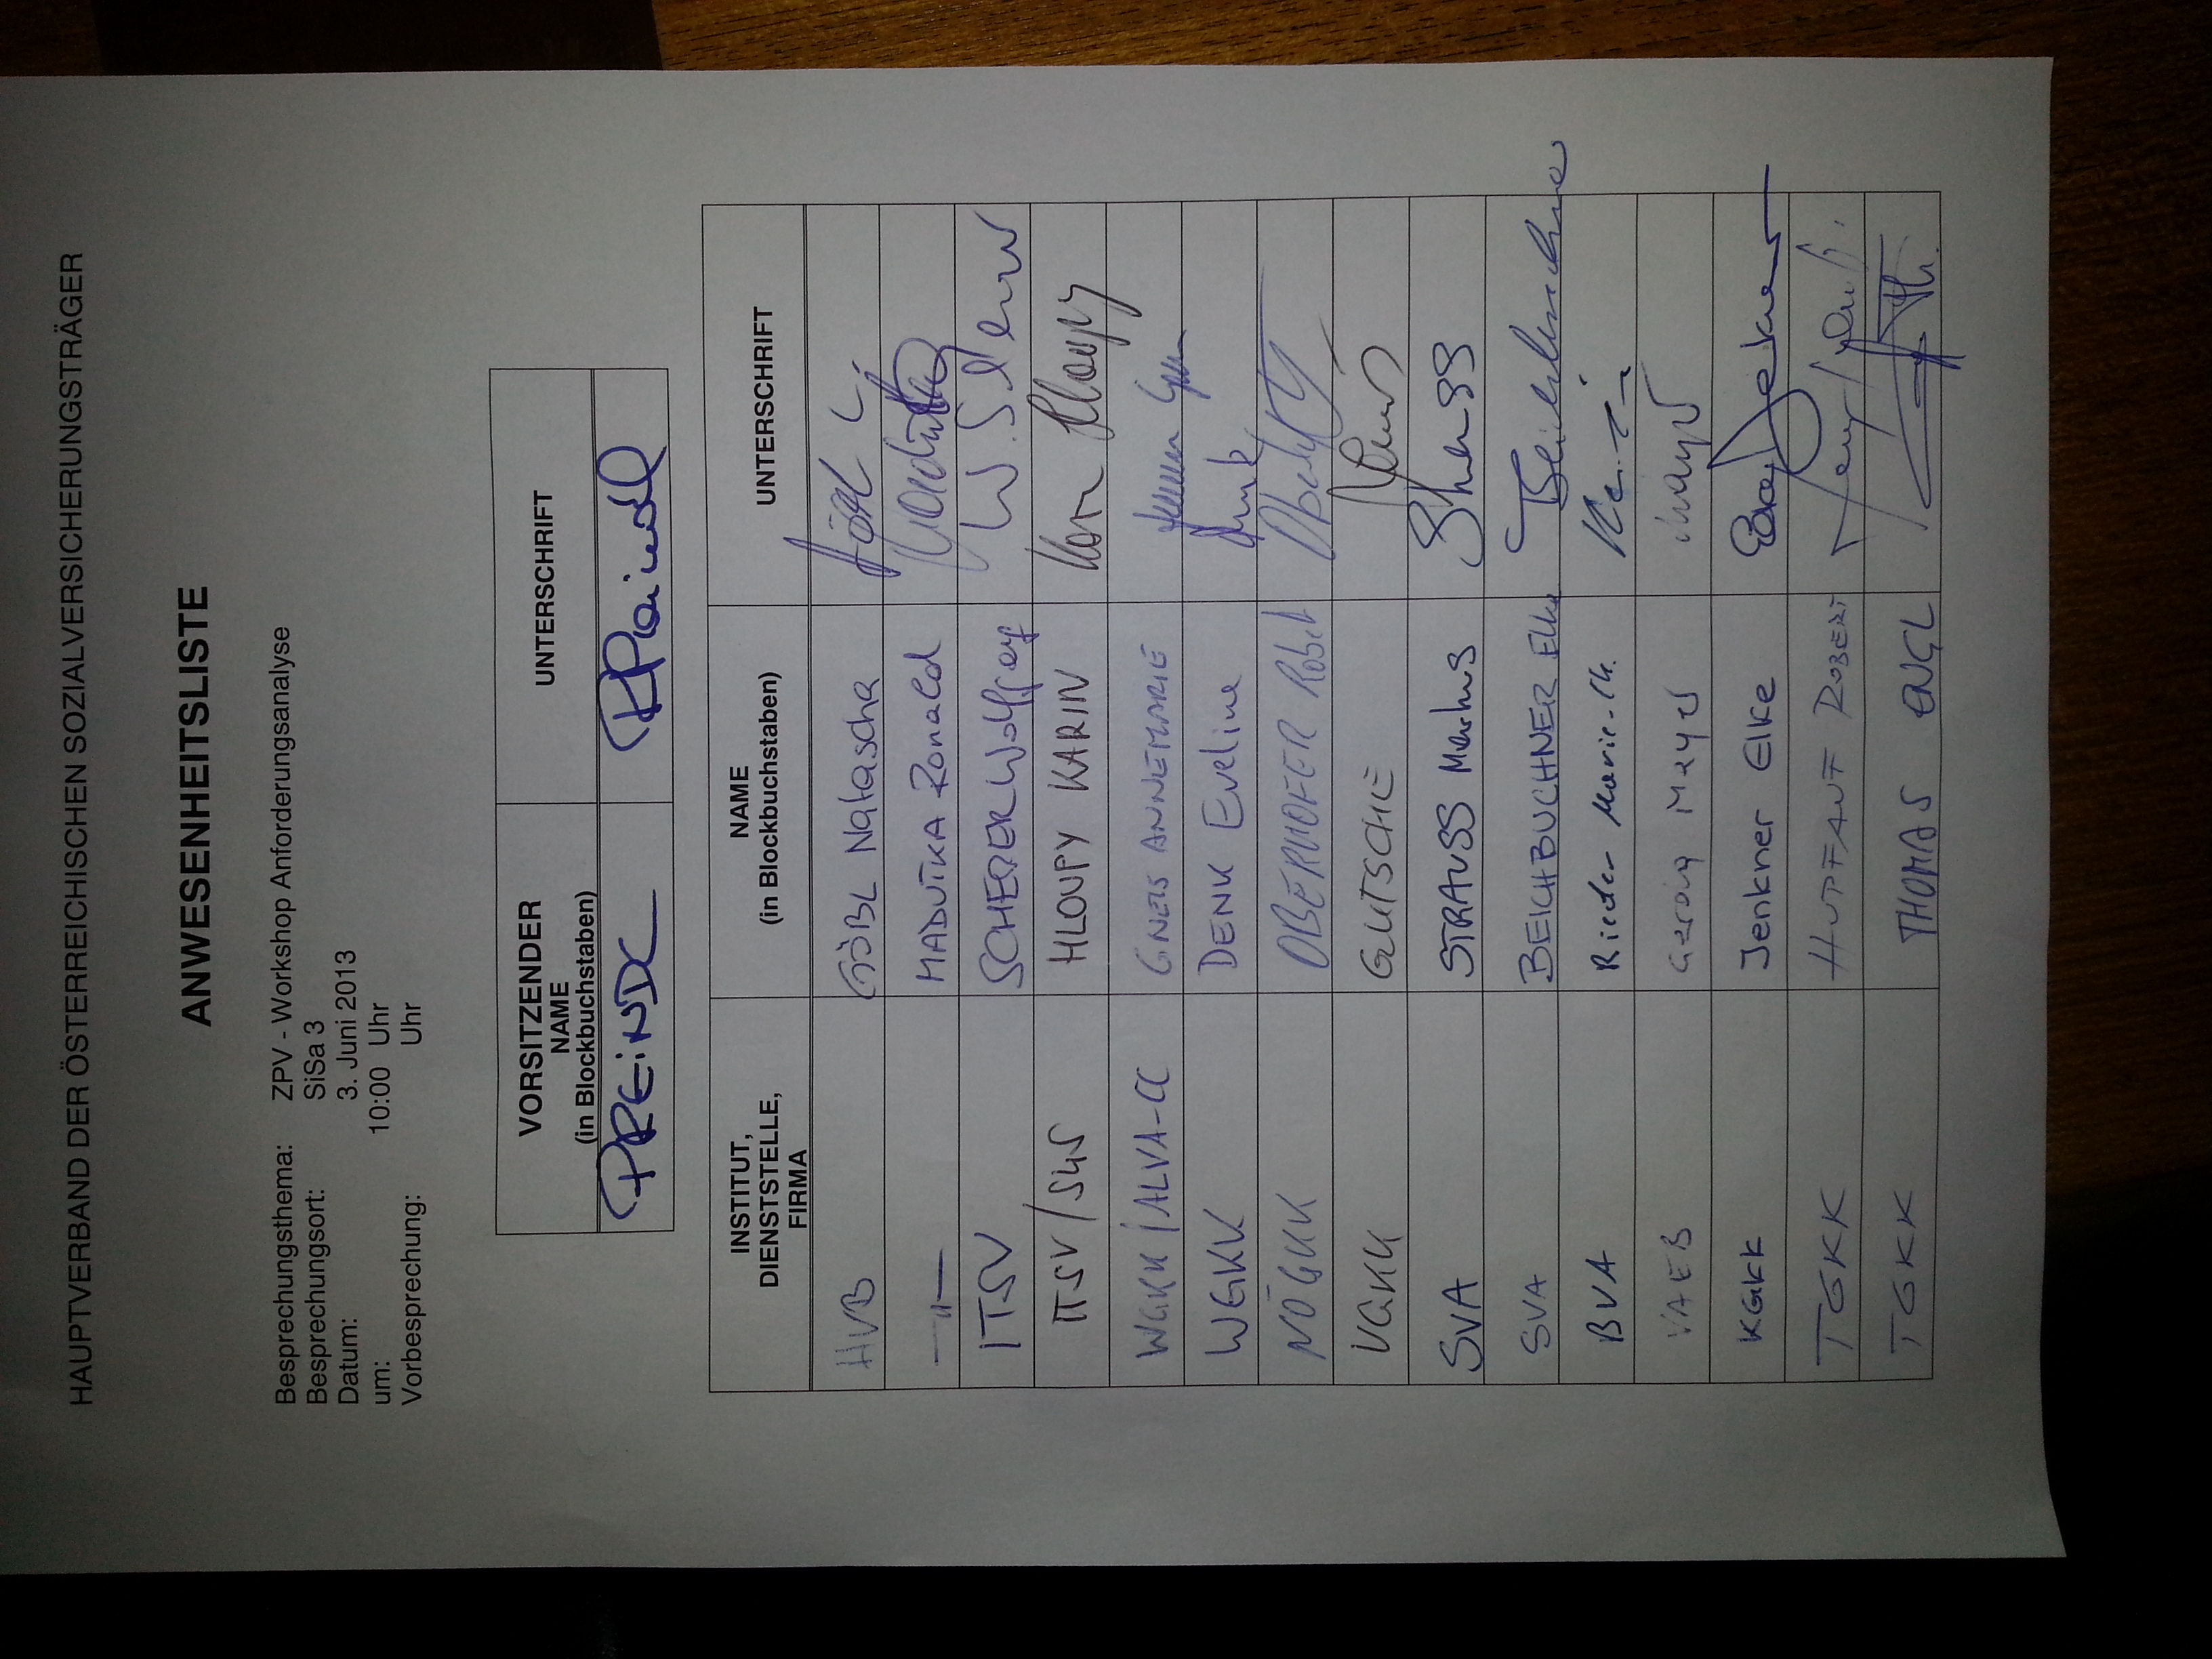 HAUPTVERBAND DER ÖSTERREICHISCHEN SOZIALVERSICHERUNGSTRÄGER
ANWESENHEITSLISTE
Besprechungsthema: ZPV - Workshop Anforderungsanalyse
Besprechungsort: SiSa 3
Datum: 3. Juni 2013
um: 10:00 Uhr
Vorbesprechung: Uhr
VORSITZENDER
NAME
(in Blockbuchstaben) UNTERSCHRIFT
PREINDL
INSTITUT,
DIENSTSTELLE,
FIRMA NAME
(in Blockbuchstaben) UNTERSCHRIFT
HVB GÖBL Natascha
—"— MADUTKA Ronald
ITSV SCHERER Wolfgang W. Scherer
ITSV/SUS HLOUPY KARIN Karin Hloupy
WGKK/ALVA-CC GNEIS ANNEMARIE
WGKK DENK Eveline Denk
NÖGKK OBERHOFER Robert
VGKK GUTSCHE
SVA STRAUSS Markus Strauss
SVA BEICHBUCHNER Elke Beichbuchner
BVA Rieder Marie-Ch.
VAEB Gernig Mayer Mayer
KGKK Jenkner Elke Elke Jenkner
TGKK HUPFAUF ROBERT
TGKK THOMAS ENGL